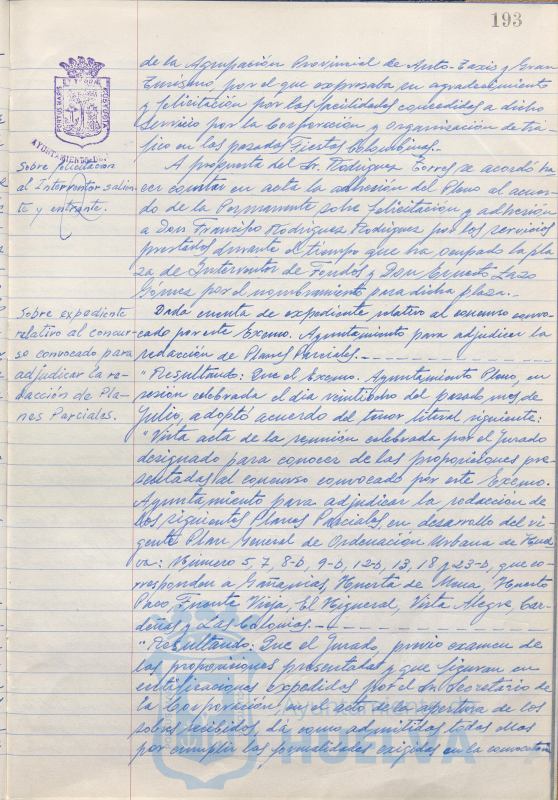 193
de la Agrupación Provincial de Auto-Taxis y Gran
Turismo por el que expresaba su agradecimiento
y felicitación por las facilidades concedidas a dicho
servicio por la Corporación y organización de trá
fico en las pasadas Fiestas Colombinas.-
Sobre felicitación
al Interventor salien
te y entrante.
A propuesta del Sr. Rodríguez Torres se acordó ha
cer constar en acta la adhesión del Pleno al acuer
do de la Permanente sobre felicitación y adhesión
a Don Francisco Rodríguez Rodríguez por los servicios
prestados durante el tiempo que ha ocupado la pla
za de Interventor de Fondos y Don Ernesto
Gómez por el nombramiento para dicha plaza.-
Sobre expediente
relativo al concur-
so convocado para
adjudicar la re-
dacción de Pla-
nes Parciales.
Dada cuenta de expediente relativo al concurso convo-
cado por este Excmo. Ayuntamiento para adjudicar la
redacción de Planes Parciales.-
"Resultando: Que el Excmo. Ayuntamiento Pleno, en
sesión celebrada el día veintiocho del pasado mes de
Julio, adoptó acuerdo del tenor literal siguiente:
"Vista acta de la reunión celebrada por el Jurado
designado para conocer de las proposiciones pre-
sentadas al concurso convocado por este Excmo.
Ayuntamiento para adjudicar la redacción de
los siguientes Planes Parciales, en desarrollo del vi-
gente Plan General de Ordenación Urbana de Huel
va: Número 5, 7, 8-D, 9-D, 12-D, 13, 18 y 23-D, que co-
rresponden a Gañanías, Huerta de Mena, Huerto
Paco, Fuente Vieja, El Higueral, Vista Alegre, Car-
deñas y Las Colonias.-
"Resultando: Que el Jurado, previo examen de
las proposiciones presentadas y que figuran en
certificaciones expedidas por el Sr. Secretario de
la Corporación en el acto de la apertura de los
sobres recibidos, da como admitidas todas ellas
por cumplir las formalidades exigidas en la convocatoria
AYUNTAMIENTO DE
HUELVA